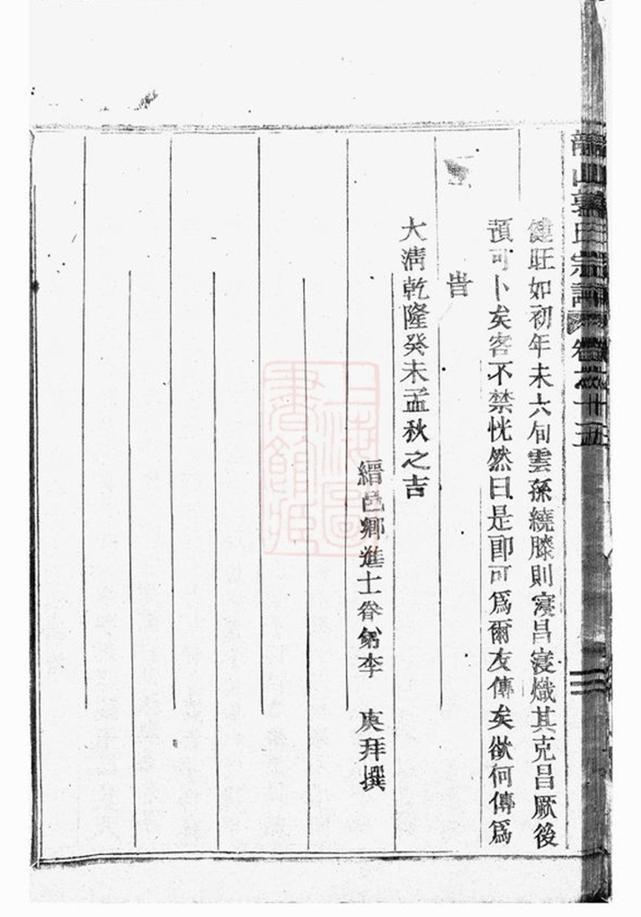 健旺如初年未六旬雲孫繞膝則寖昌寖熾其克昌厥後
預可卜矣客不禁恍然曰是即可爲爾友傳矣欲何傳爲
旹
大清乾隆癸未孟秋之吉
縉邑鄉進士眷　李　庚拜撰
上海圖書館藏
郭氏宗譜　卷之